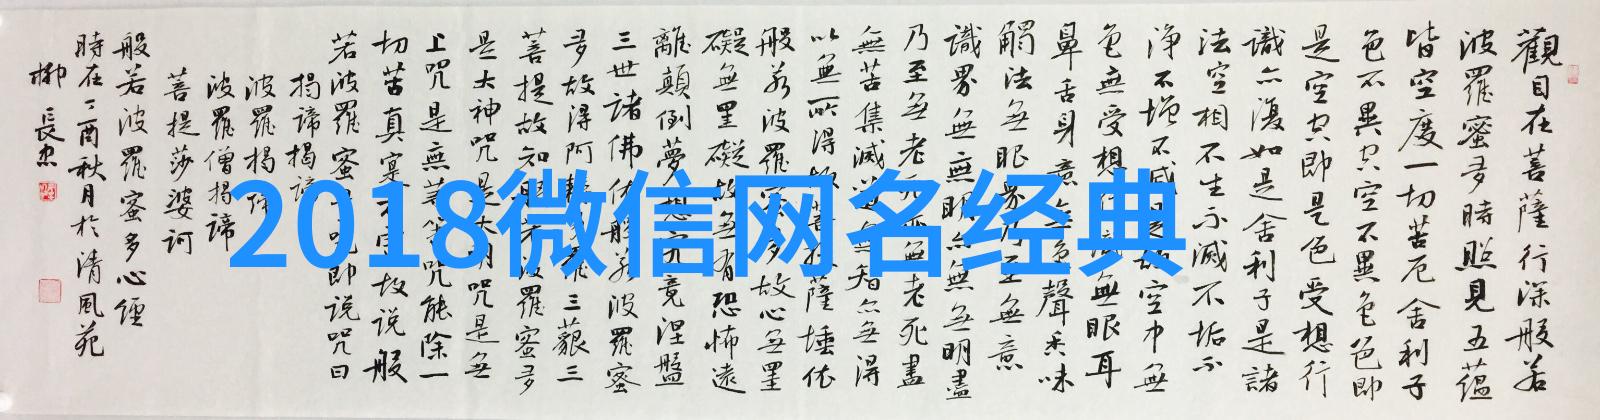 觀自在菩薩行深般若
波羅蜜多時照見五蘊
皆空度一切苦厄舍利子
色不異空空不異色色即
是空空即是色受想行
識亦復如是舍利子是諸
法空相不生不滅不垢不
淨不增不減是故空中無
色無受想行識無眼耳
鼻舌身意無色聲香味
觸法無眼界乃至無意
識界無無明亦無無明盡
乃至無老死亦無老死盡
無苦集滅道無智亦無得
以無所得故菩提薩埵依
般若波羅蜜多故心無罣
礙無罣礙故無有恐怖遠
離顛倒夢想究竟涅盤
三世諸佛依般若波羅蜜
多故得阿耨多羅三藐三
菩提故知般若波羅蜜多
是大神咒是大明咒是無
上咒是無等等咒能除一
切苦真實不虛故說般
若波羅蜜多咒即說咒曰
揭諦揭諦
波羅揭諦
波羅僧揭諦
菩提莎婆訶
般若波羅蜜多心經
時在丁酉秋月於清風苑
柳長忠
2018微信网名经典